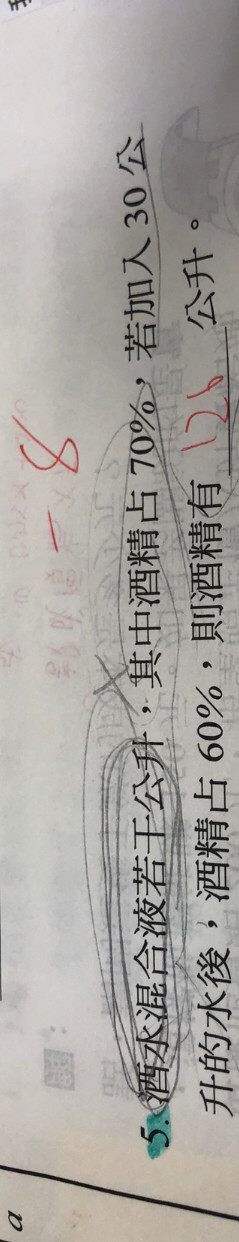 5. 酒水混合液若干公升，其中酒精占 70%，若加入 30 公
升的水後，酒精占 60%，則酒精有 126 公升。
-8
a